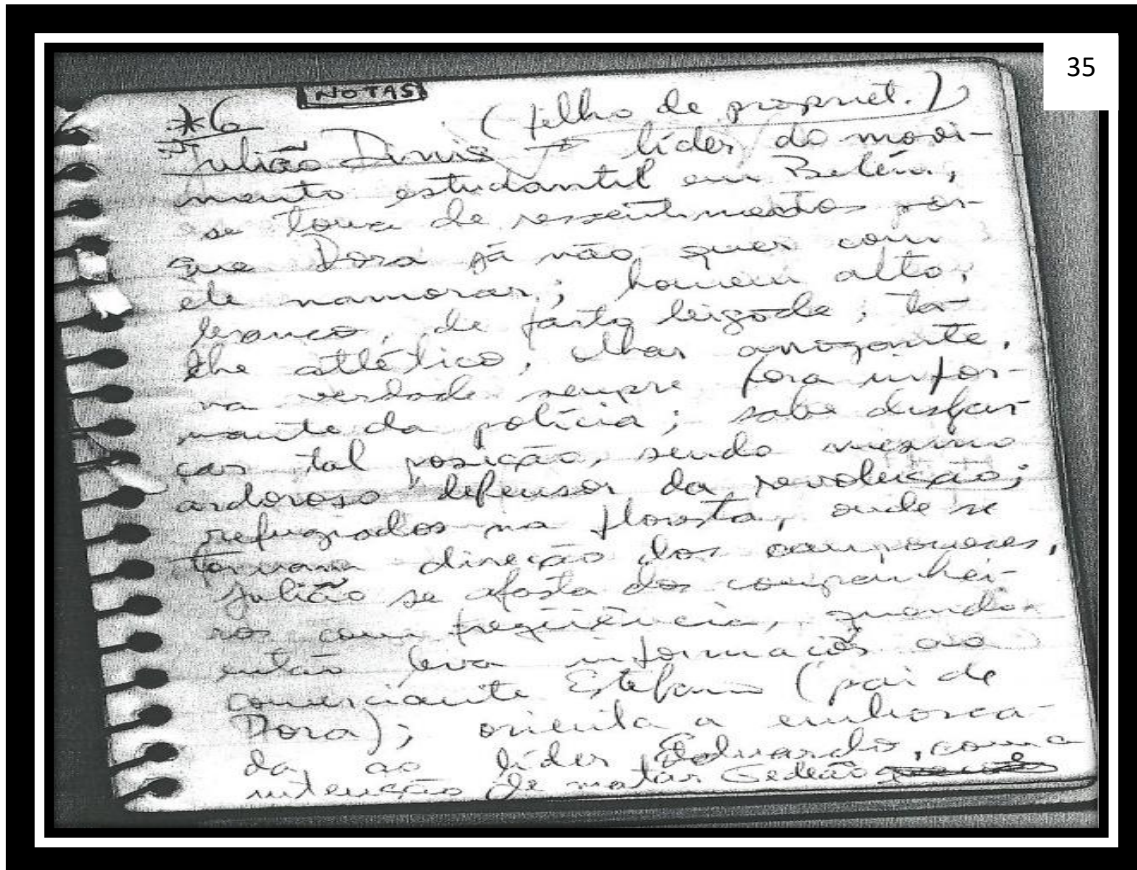 35
NOTAS
*6 (filho de propriet.)
Julião Dinis → líder do movi-
mento estudantil em Belém,
se toma de ressentimentos por-
que Dora já não quer com
ele namorar; homem alto,
branco, de farto bigode; ta-
lhe atlético, olhar arrogante,
na verdade sempre fora infor-
mante da polícia; sabe disfar-
çar tal posição, sendo mesmo
ardoroso defensor da revolução;
refugiados na floresta, onde se
tornam direção dos camponeses,
Julião se afasta dos companhei-
ros com freqüência, quando
então leva informações ao
comerciante Estefano (pai de
Dora); orienta a embosca-
da ao líder Eduardo, com a
intenção de matar Gedeão